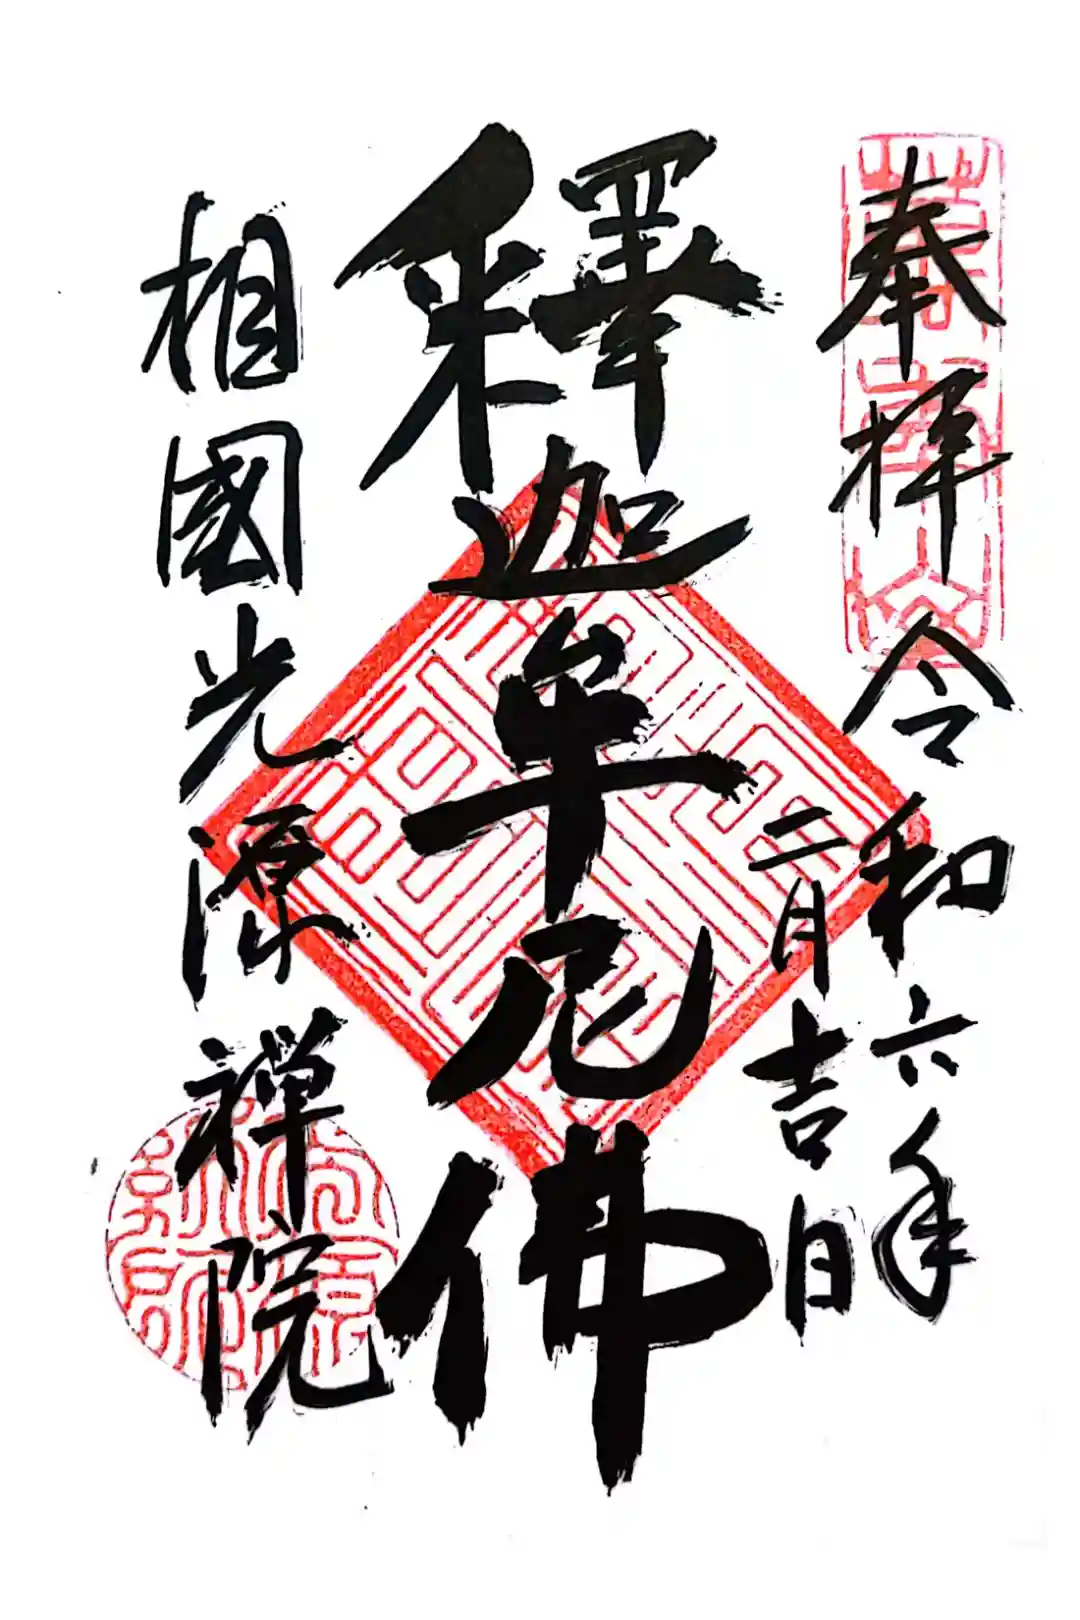 奉拝 令和六年
二月吉日
釋迦牟尼佛
相國光源禅院